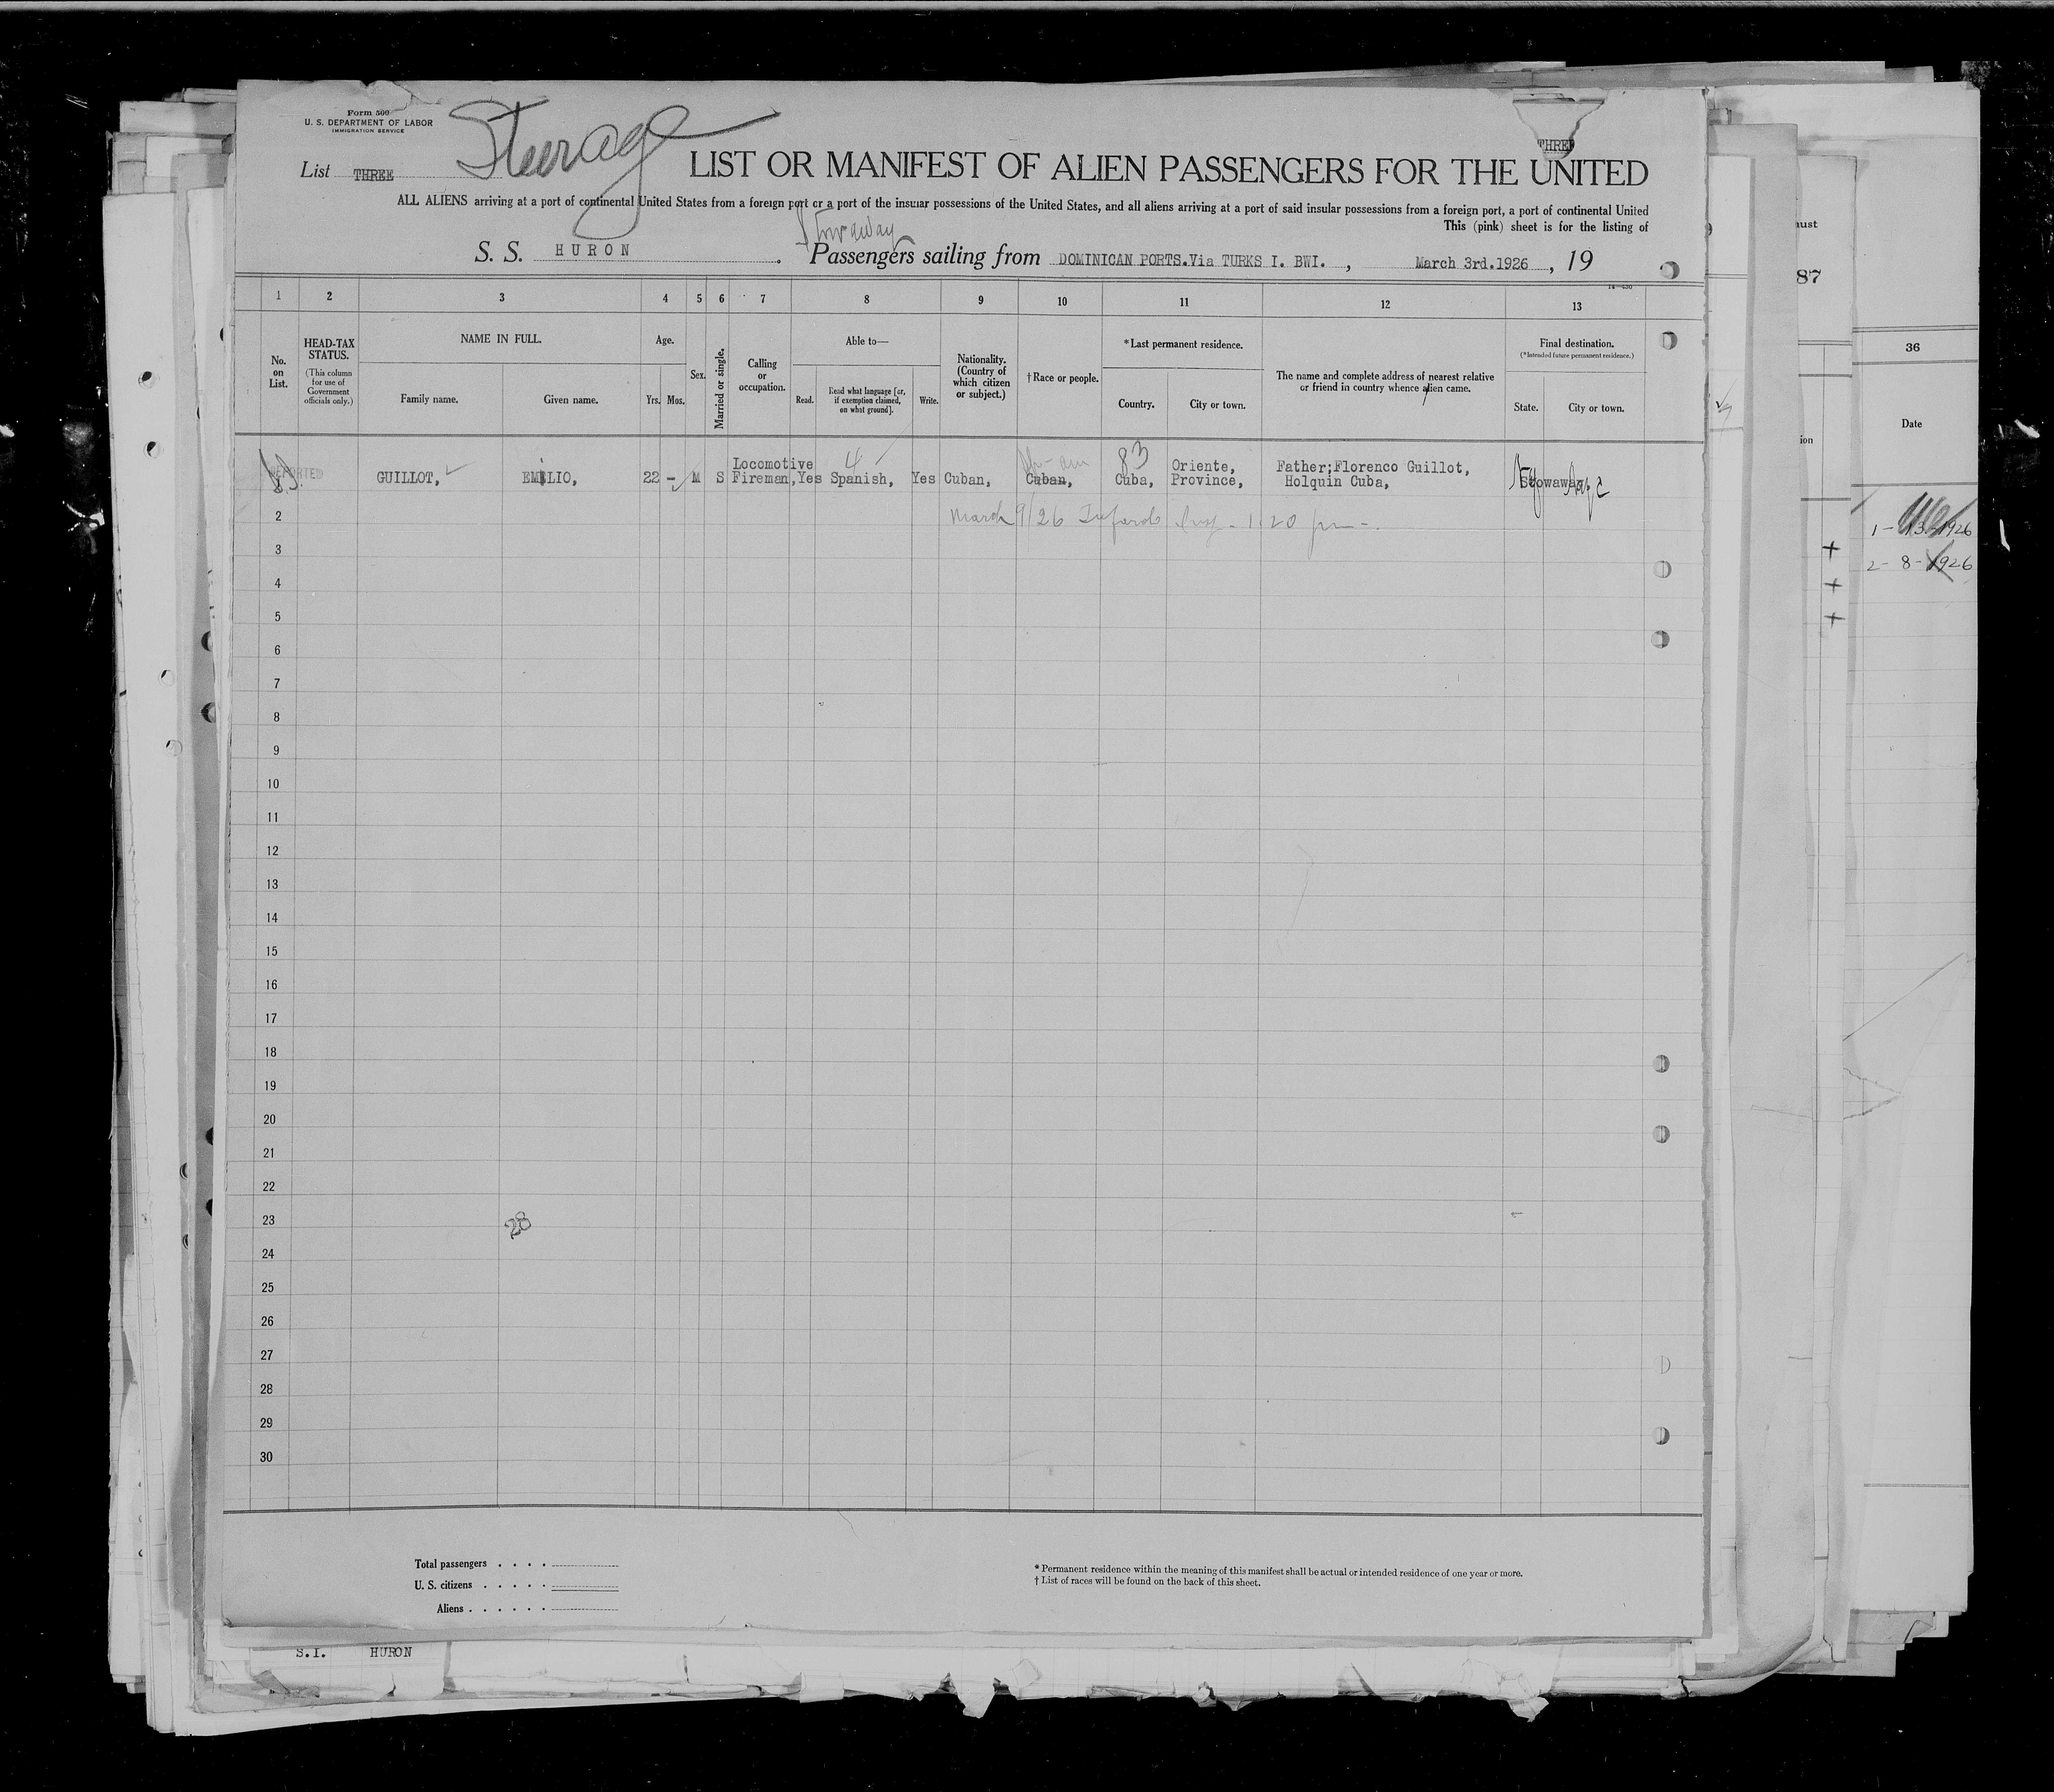 Form 500
U. S. DEPARTMENT OF LABOR
IMMIGRATION SERVICE
Steerage
THREE
List THREE
LIST OR MANIFEST OF ALIEN PASSENGERS FOR THE UNITED
ALL ALIENS arriving at a port of continental United States from a foreign port or a port of the insular possessions of the United States, and all aliens arriving at a port of said insular possessions from a foreign port, a port of continental United
This (pink) sheet is for the listing of
Stowaway
S. S. HURON . Passengers sailing from DOMINICAN PORTS.Via TURKS I. BWI. , March 3rd.1926 , 19
1 2 3 4 5 6 7 8 9 10 11 12 13
No. on List.
HEAD-TAX STATUS.
(This column for use of Government officials only.)
NAME IN FULL.
Family name. Given name.
Age.
Yrs. Mos.
Sex.
Married or single.
Calling or occupation.
Able to—
Read. Read what language [or, if exemption claimed, on what ground]. Write.
Nationality. (Country of which citizen or subject.)
†Race or people.
*Last permanent residence.
Country. City or town.
The name and complete address of nearest relative or friend in country whence alien came.
Final destination.
(*Intended future permanent residence.)
State. City or town.
DEPORTED GUILLOT, EMILIO, 22 - M S Locomotive Fireman, Yes Spanish, Yes Cuban, Cuban, 83 Cuba, Oriente, Province, Father;Florenco Guillot, Holquin Cuba, Stowaway
2 March 9/26 1.20 pm
3
4
5
6
7
8
9
10
11
12
13
14
15
16
17
18
19
20
21
22
23
28
24
25
26
27
28
29
30
Total passengers . . . .
U. S. citizens . . . . .
Aliens . . . . . .
* Permanent residence within the meaning of this manifest shall be actual or intended residence of one year or more.
† List of races will be found on the back of this sheet.
S.I. HURON
ust
87
ion
36
Date
1-13-1926
2-8-1926
+
+
+